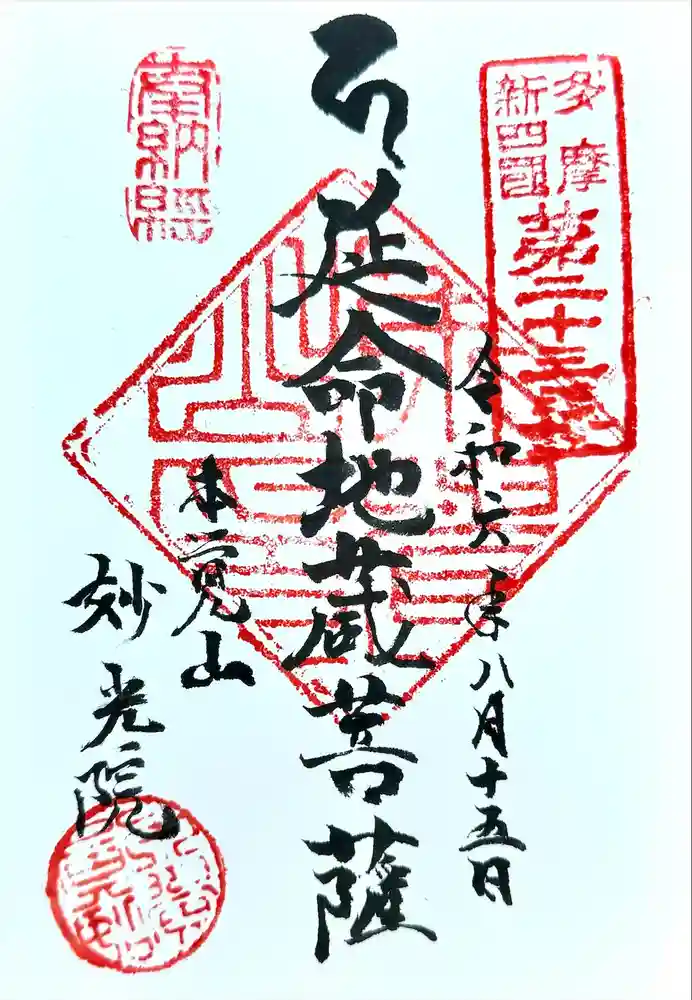 多摩
新四国
第二十三番
令和六年八月十五日
延命地蔵菩薩
奉納経
本覚山
妙光院